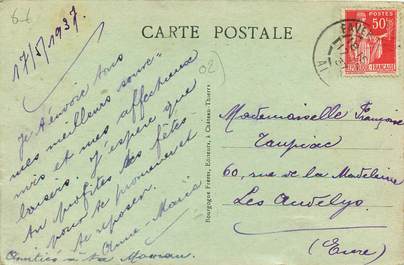 CARTE POSTALE
17/5/1937
Je t'envoie tous
mes meilleurs souve-
nirs et mes affectueux
baisers. J'espère que
tu profites des fêtes
pour te promener et
te reposer.
Anne-Marie
Amitiés à ta Maman.
02
Bourgogne Frères, Editeurs, à Château-Thierry
POSTES
50c
REPUBLIQUE FRANÇAISE
Mademoiselle Françoise
60, rue de la Madeleine
Les Andelys
(Eure)